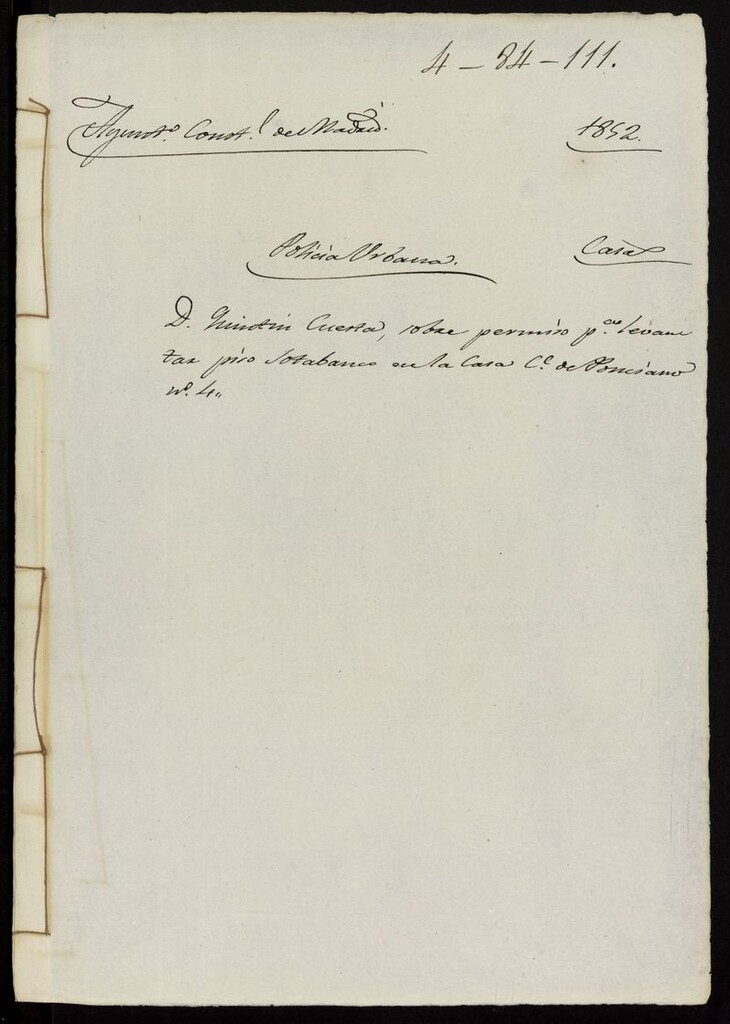 4-84-111.
Ayunto. Constl. de Madrid.
1852.
Policía Urbana.
Casa
D. Quintin Cuesta, sobre permiso pa. levan
tar piso sotabanco en la Casa Ce. de Ponciano
no. 4,,